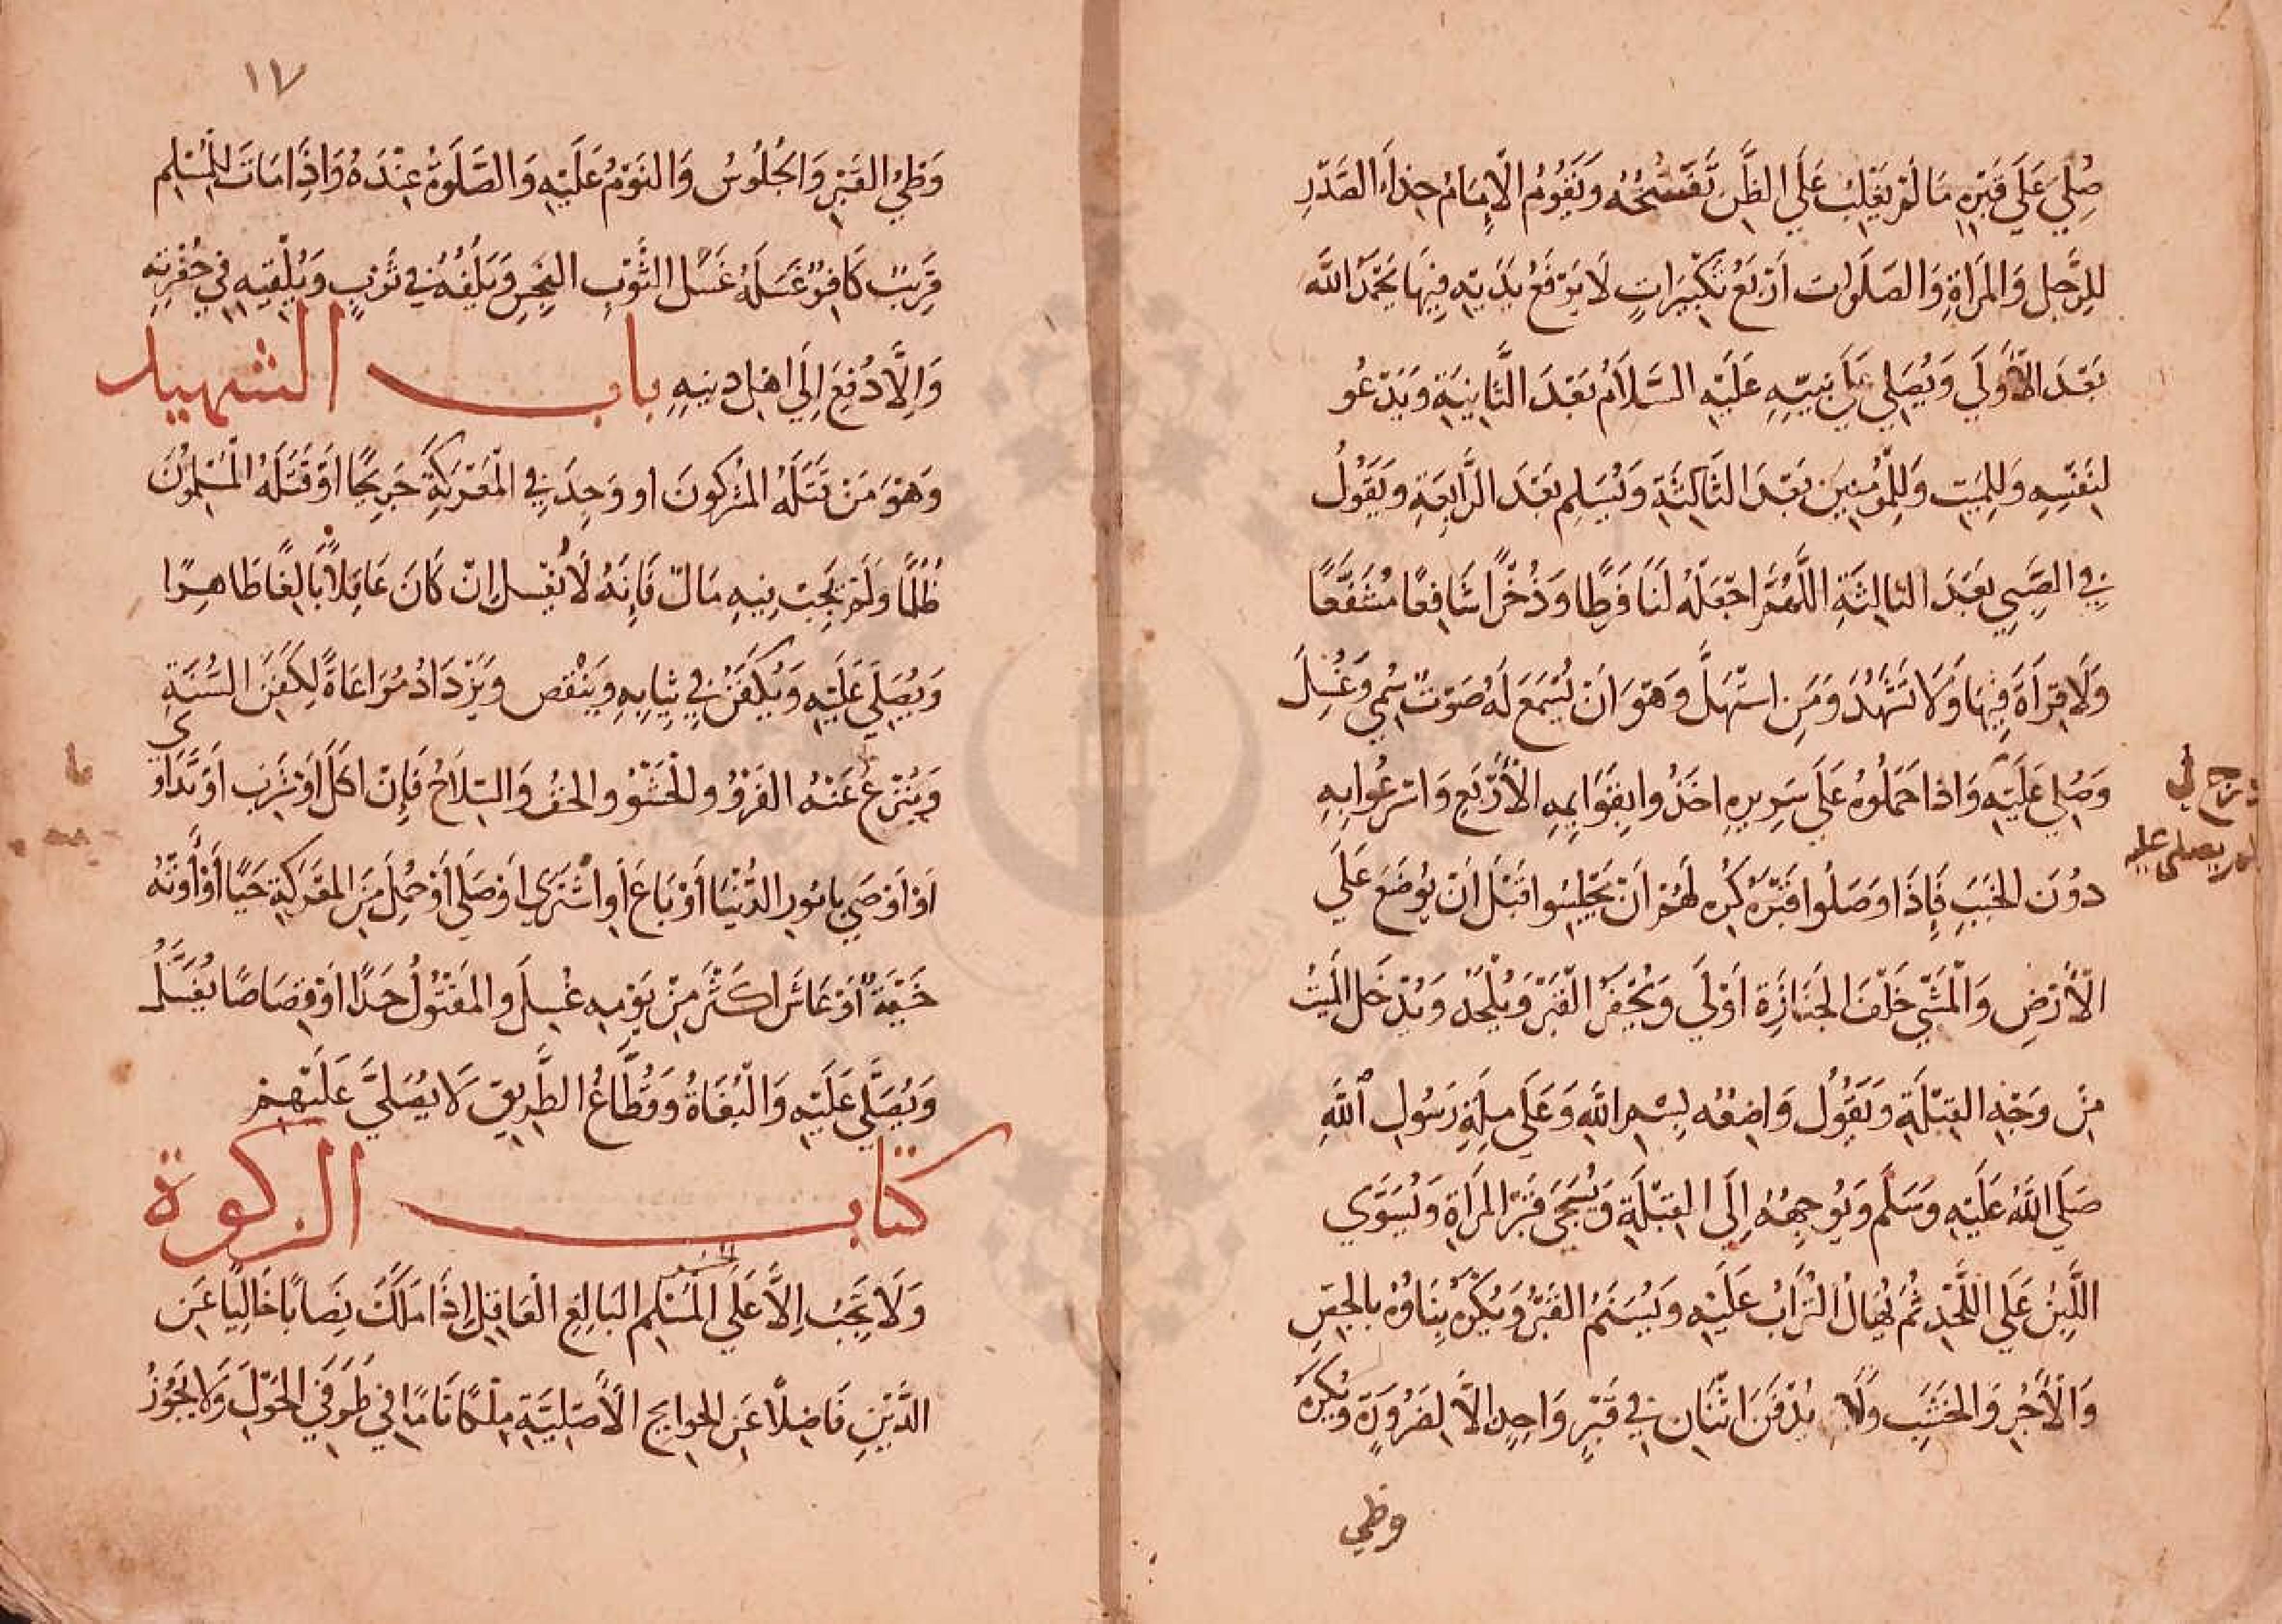 صُلِّيَ عَلَي قَبْرِهِ مَا لَمْ يَغْلِبْ عَلَي الظَّنِ تَفَسُّخُهُ وَيَقُومُ الْإِمَامُ حِذَاءَ الصَّدْرِ
لِلرَّجُلِ وَالمَرْأَةِ وَالصَلَوات أَرْبَعُ تَكْبِيَراتٍ لَا يَرْفَعُ يَدَيْهِ فِيْهَا يَحْمَدُ اللَّه
بَعْدَ الْأُولَي وَيُصَلِي عَلَي نَبِيِّهِ عَلَيْهِ السَّلاَمُ بَعْدَ الثَّانِيَةِ وَيَدْعُو
لِنَفْسِهِ وَلِلمَيِتِ وَلِلْمُؤْمِنِينَ بَعْدَ الثَالِثَةِ وَيُسَلِم بَعْدَ الرَّابِعَةِ وَيَقُولُ
فِي الصَّبِيِ بَعْدَ الثالِثَةِ اللَّهُمَّ اجْعَلْهُ لَنَا فَرَطًا وَذُخْرًا شَافِعًا مُشَفَّعًا
وَلَا قِرَأَةَ فِيْهَا وَلَا تَشَهُّدَ وَمَنِ اسْتَهَلَّ وَهْوَ اَنْ يُسْمَعَ لَهُ صَوْتٌ سُمِّيَ وَغُسِلَ
وَصُلِيَ عَلَيْهِ وَاذا حَمَلُوهُ عَلَي سَرِيرِهِ اخَذُوا بِقَوَايِمِهِ الْأَرْبَعِ وَاسْرعُوا بِهِ
دوُنَ الخَبَبِ فَاِذَا وَصَلُوا قَبْرَهُ كُرِه لَهُمْ اَنْ يَجْلِسُوا قَبْلَ اَنْ يُوضَعَ عَلَي
الْأَرْضِ وَالْمَشْيُ خَلْفَ الجَنَازَةِ اَوْلَي وَيُحْفَرُ الْقَبْرُ وَيُلْحَدُ وَيُدْخَل المَيِّتُ
مِنْ وَجْهِ القِبْلَةِ وَيَقُولُ وَاضِعُه بِسْمِ اللّٰهِ وَعَلَي مِلَةِ رَسُولِ اللّٰهِ
صَلَي اللّٰهُ عَلَيْهِ وَسَلَم وَيُوَجِهُهُ اِلَى القِبْلَةِ وَيُسَجَى قَبْرُ المَرْأَةِ وَيُسَوَّي
اللَّبِنُ عَلَي اللَحْدِ ثُمَ يُهَالُ التُرَابُ عَلَيْهِ وَيُسَنَمُ القَبْرُ وَيُكْرَهُ بِنَاؤُهُ بِالجِصِّ
وَالْأَجُرِ وَالخَشَبِ وَلَا يُدْفَنَ اثْنَان فِي قَبْرٍ وَاحِدٍ اِلاَّ لِضَرُورَةٍ وَيُكْرَهُ
وطي
لم يصلي عليه
١٧
وَطْيُ القَبْرِ وَالجُلُوسُ وَالنَوْمُ عَلَيْهِ وَالصَّلَوةُ عِنْدَهُ وَاِذَا مَاتَ لِلْمُسْلِمِ
قَرِيبٌ كَافِرٌ غَسَلَهُ غَسْلَ الثَّوْبِ النَجِسِ وَيَلُفُهُ فِي ثَوْبٍ وَيُلْقِيهِ فِي حُفْرَتِهِ
وَاِلَّا دُفِعَ اِلَي اهْلِ دِينِهِ باب الشهيد
وَهْوَ مَنْ قَتَلَهُ المُشْرِكُونَ او وُجِدَ فِي الْمَعْرَكَةِ جَرِيْحًا اَوْ قَتَلَهُ الْمُسْلِمُوْنَ
ظُلْمًا وَلَمْ يَجِبْ فِيهِ مَالٌ فَاِنَهُ لَا يُغْسَل اِنْ كَانَ عَاقِلاً بَالِغًا طَاهِرًا
وَيُصَلَي عَلَيْهِ وَيُكَفَنُ فِي ثِيَابِهِ وَيَنْقُص وَيَزْدَادُ مُرَاعَاةً لِكَفَنِ السُنَةِ
وَيُنْزعُ عَنْهُ الفَرْوُ والْحَشْوُ والخُفُ وَالسِلَاحُ فَاِنْ اكَلَ اَوْ شَرِبَ اَوْ تَدَاوَى
اَوْ اَوْصَي بِامُورِ الدُّنْيَا اَوْ بَاعَ اَو اشْتَرَي اَوْ صَلَي اَوْ حُمِلَ مِنَ المَعْرَكَةِ حَيًا اَوْ آوَتْهُ
خَيْمَةٌ اَوْ عَاشَ اكَثْرَ مِنْ يَوْمِهِ غُسِلَ والمَقْتُولُ حَدًا اَوْ قِصَاصًا يُغَسَّلُ
وَيُصَلَّي عَلَيْهِ وَالْبُغَاةُ وَقُطَّاعُ الطَّرِيقِ لَا يُصَلَّيَ عَلَيْهِمْ
كتاب الزكوة
وَلَا تَجِبُ اِلاَّ عَلَي المُسْلِمِ البَالِغِ الْعَاقِلِ اِذَا مَلَكَ نِصَابًا خَالِيًا عَنِ
الدَّيْنِ فَاضِلًا عَنِ الحوايِج الْأَصْلِيَةِ مِلْكًا تَامًا فِي طَرَفَيِ الحَوْلِ وَلَا يَجُوْزُ